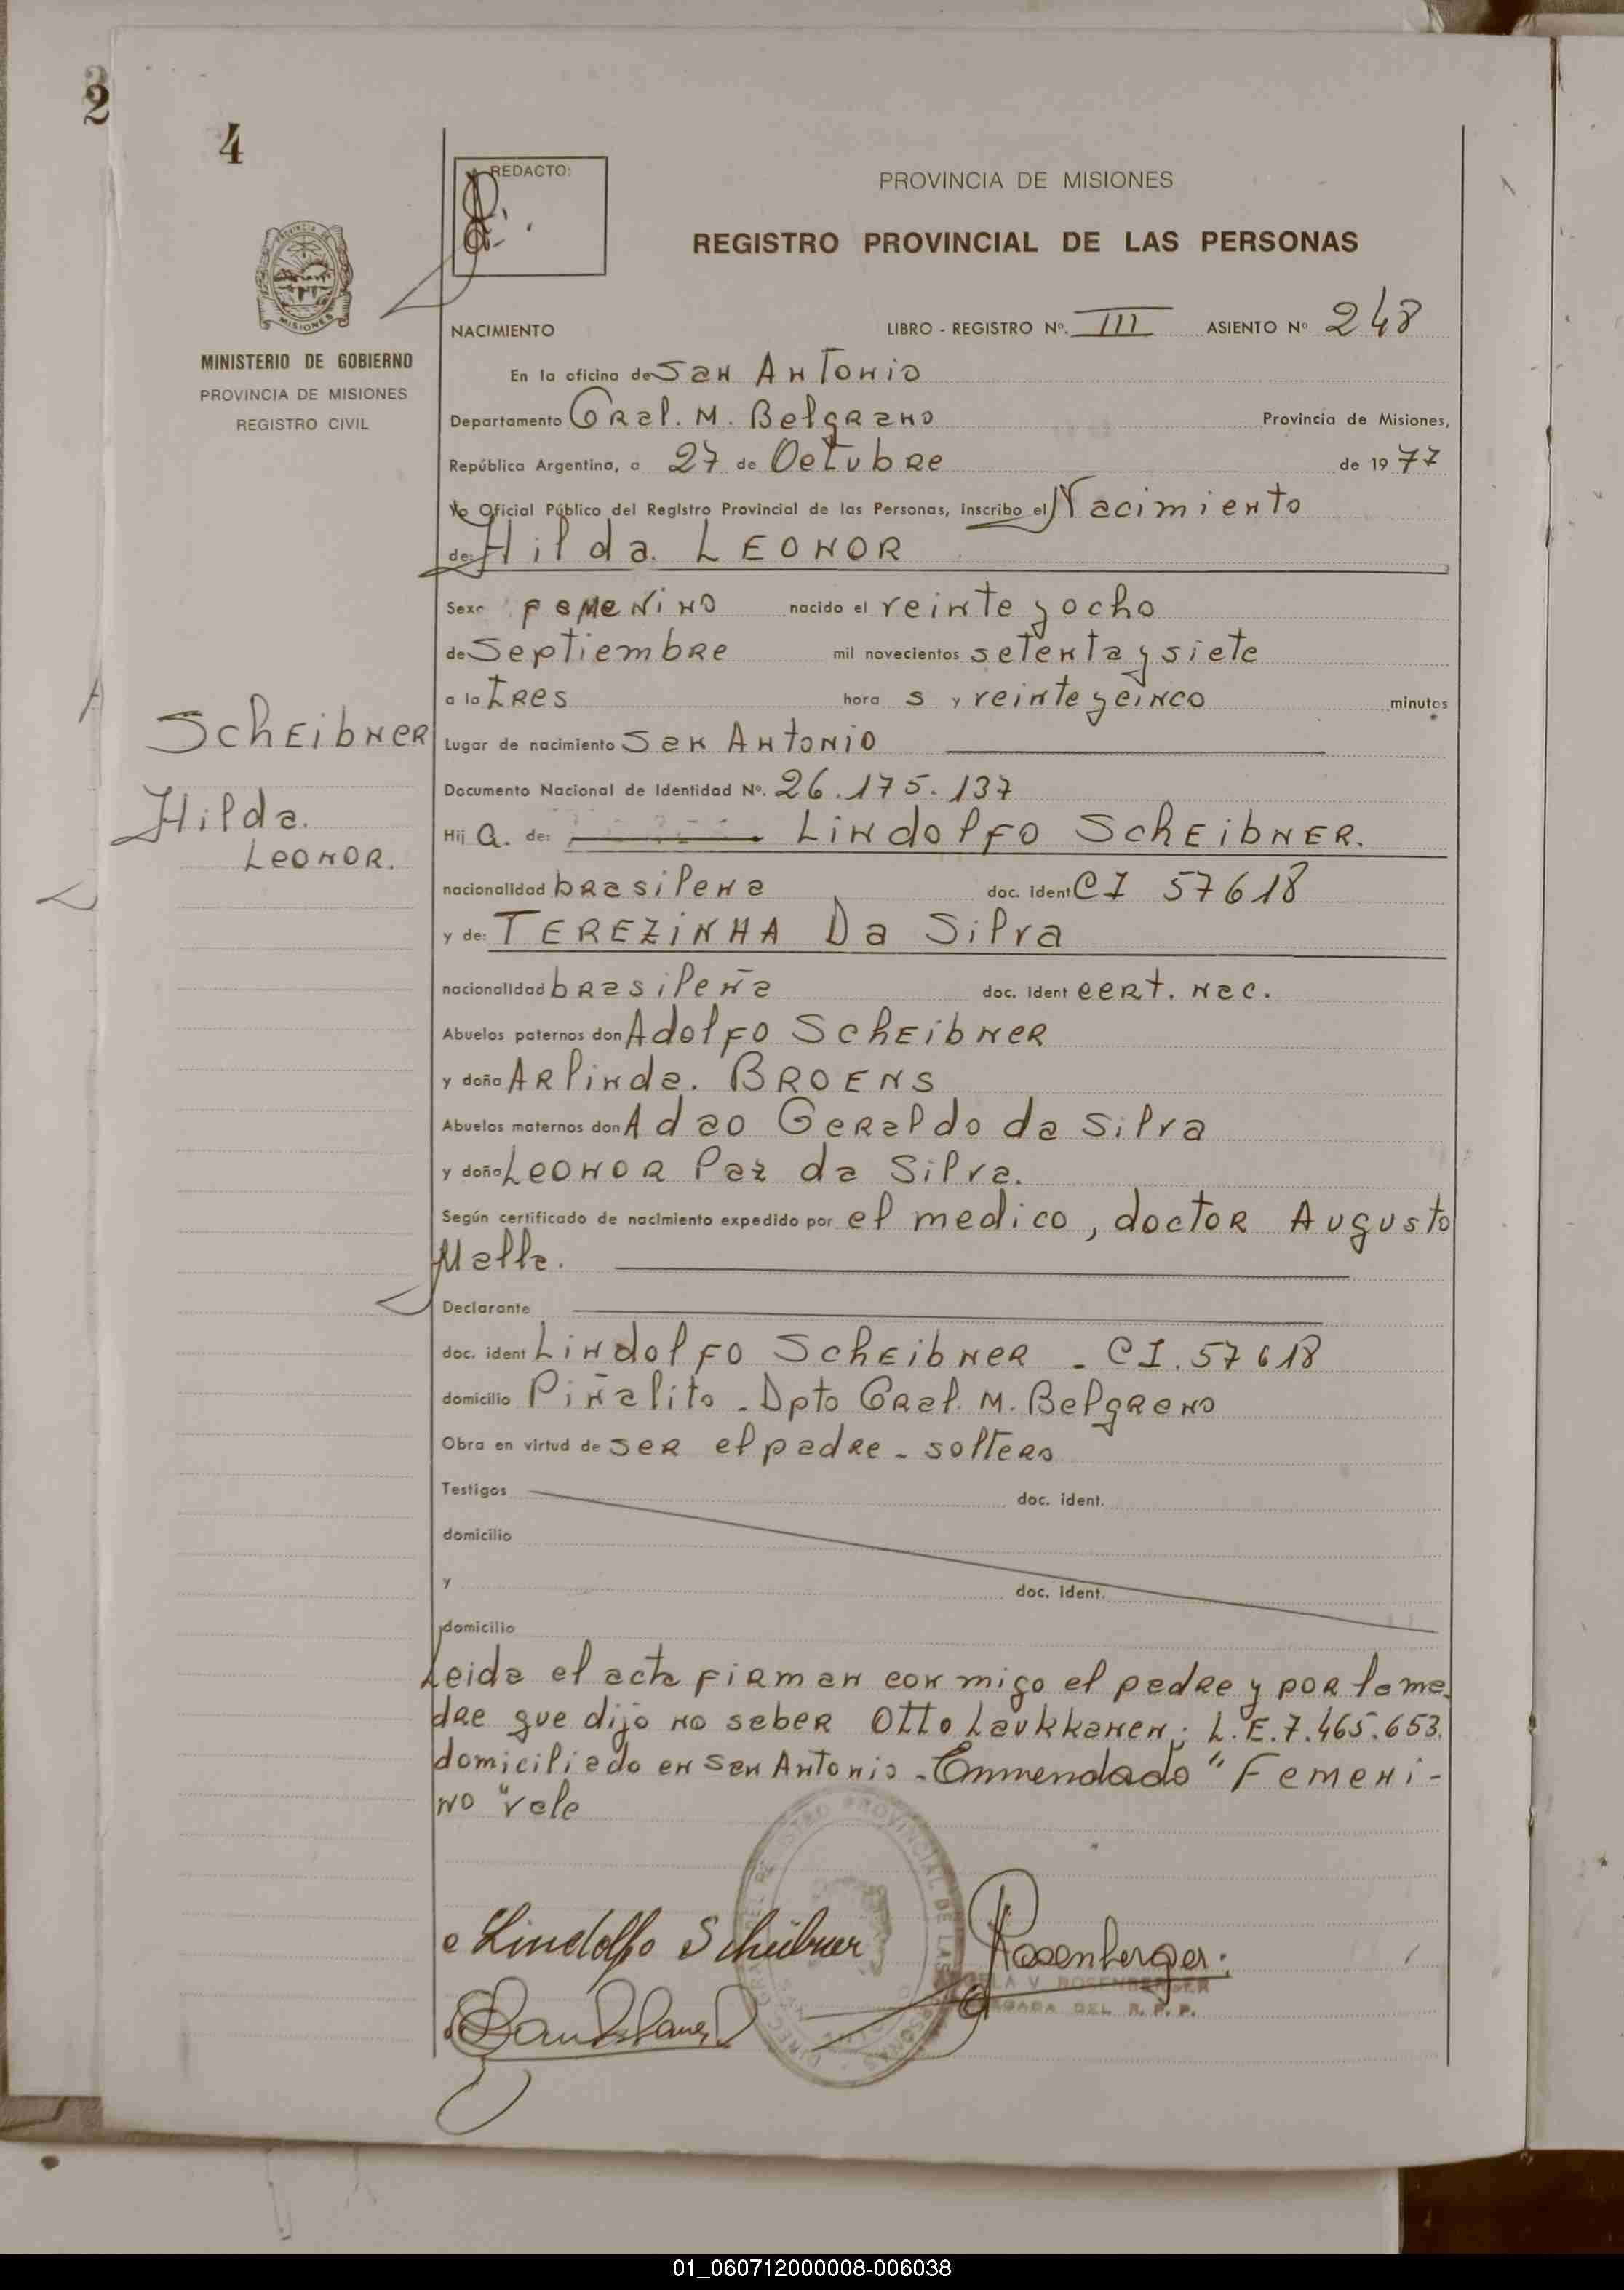 2
4
REDACTO:
PROVINCIA DE MISIONES
REGISTRO PROVINCIAL DE LAS PERSONAS
MISIONES
MINISTERIO DE GOBIERNO
PROVINCIA DE MISIONES
REGISTRO CIVIL
NACIMIENTO LIBRO - REGISTRO Nº. III ASIENTO Nº 248
En la oficina de San Antonio
Departamento Gral. M. Belgrano Provincia de Misiones,
República Argentina, a 27 de Octubre de 1977
Yo Oficial Público del Registro Provincial de las Personas, inscribo el Nacimiento
de: Hilda LEONOR
Sexo Femenino nacido el veinte y ocho
de Septiembre mil novecientos setenta y siete
a la tres hora s y veinte y cinco minutos
Scheibner
Hilda
Leonor.
Lugar de nacimiento San Antonio
Documento Nacional de Identidad Nº. 26.175.137
Hij a. de: Lindolfo Scheibner.
nacionalidad brasilena doc. Ident CI 57618
y de: TEREZINHA Da Silva
nacionalidad brasileña doc. Ident cert. nac.
Abuelos paternos don Adolfo Scheibner
y doña Arlinda. BROENS
Abuelos maternos don Adao Geraldo da Silva
y doña Leonor Paz da Silva.
Según certificado de nacimiento expedido por el medico, doctor Augusto
Malla.
Declarante
doc. ident Lindolfo Scheibner - CI. 57618
domicilio Piñalito - Dpto Gral. M. Belgrano
Obra en virtud de ser el padre - soltero
Testigos doc. ident.
domicilio
y doc. ident.
domicilio
Leida el acta firman conmigo el padre y por la ma
dre que dijo no saber Otto Laukkanen; L.E. 7.465.653.
domiciliado en San Antonio - Enmendado "Femeni-
no" vale
Lindolfo Scheibner
Rosenberger.
V. ROSENBERGER
DEL R. P. P.
01_060712000008-006038